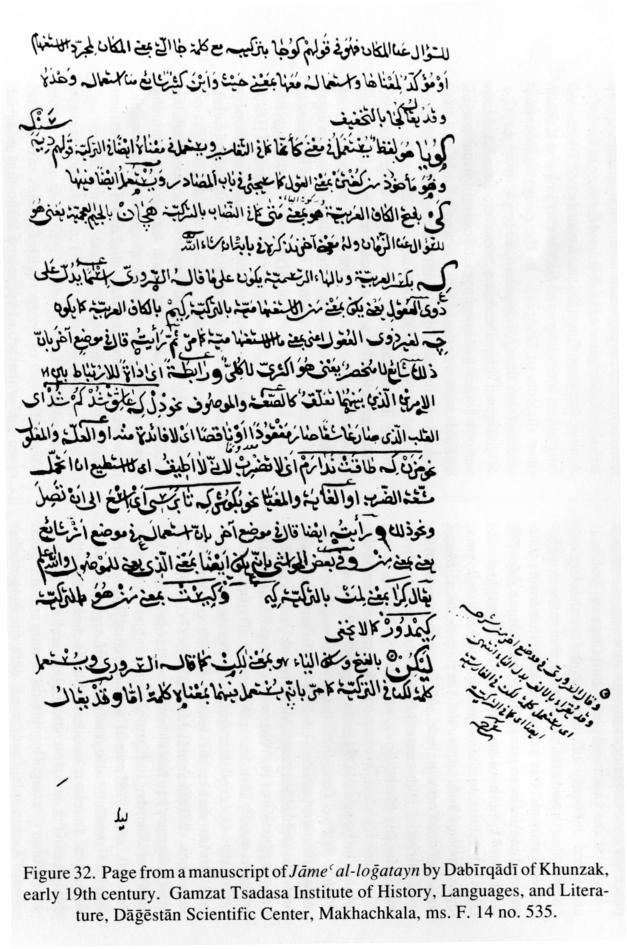 للسؤال عن المكان فهو في قولهم كوجا بتركيبه مع كلمة جا التي بمعنى المكان لمجرد الاستفهام
او مؤكد لمعناها واستعماله معها بمعنى حيث واين كثير شائع استعماله وحده
وقد يقال كجا بالتخفيف
كويا هو لفظ يستعمل في معنى كأنما كما في ويستعمل في معناه ايضا في التركية قولهم
وهو مأخوذ من كفتن بمعنى القول كما سيجئ في باب المصادر ويستعمل ايضا فيهما
كى بفتح الكاف العربية هو بمعنى متى كما في النصاب بالتركية هچان بالجيم العجمية يعني هو
للسؤال عن الزمان وله معنى آخر نذكره في بابه ان شاء الله
كه بكسر العربية وبالهاء الرسمية يكون على ما قاله السروري اسما يدل على
ذوي العقول يعني يكون بمعنى من الاستفهامية بالتركية كيم بالكاف العربية كما يكون
چه لغير ذوي العقول اعني بمعنى ما الاستفهامية كما مر ثم رأيته قال في موضع آخر بان
ذلك شائع لا منحصر يعني هو اكثري لا كلي ورابطة اي اداة للارتباط بين
الامرين الذين بينهما تعلق كالصفة والموصوف نحو دل كه عاشق شد كم شد اي
القلب الذي صار عاشقا صار مفقودا او ناقصا اي لا فائدة منه او العلة والمعلول
نحو مزن كه طاقت ندارم اي لا تضرب لاني لا اطيق اي لا استطيع ان اتحمل
مشقة الضرب او الغاية والمغيا نحو بكوش كه تا برسى اي اسع الى ان تصل
ونحو ذلك ورأيته ايضا قال في موضع آخر بان استعماله في موضع از شائع
يعني بمعنى من وفي بعض الحواشي بانه يكون ايضا بمعنى الذي يعني للموصول والله اعلم
يقال كرا بمعنى لمن بالتركية كيمه وكيست بمعنى من هو بالتركية
كيمدور كما لا يخفى
ليكن بالفتح وسكون الياء هو بمعنى لكن كما قاله السروري ويستعمل
كلمة لكن في التركية كما مر بانه يستعمل فيهما بمعناه كلمة اما وقد يقال
وقال السروري في موضع آخر من شرحه
وقد يقرأ بالالف بدل الياء انتهى
اي يستعمل كلمة لكن في الفارسية
ايضا اي كما في التركية
Figure 32. Page from a manuscript of Jāmeʿ al-loḡatayn by Dabīrqādī of Khunzak,
early 19th century. Gamzat Tsadasa Institute of History, Languages, and Litera-
ture, Dāḡēstān Scientific Center, Makhachkala, ms. F. 14 no. 535.